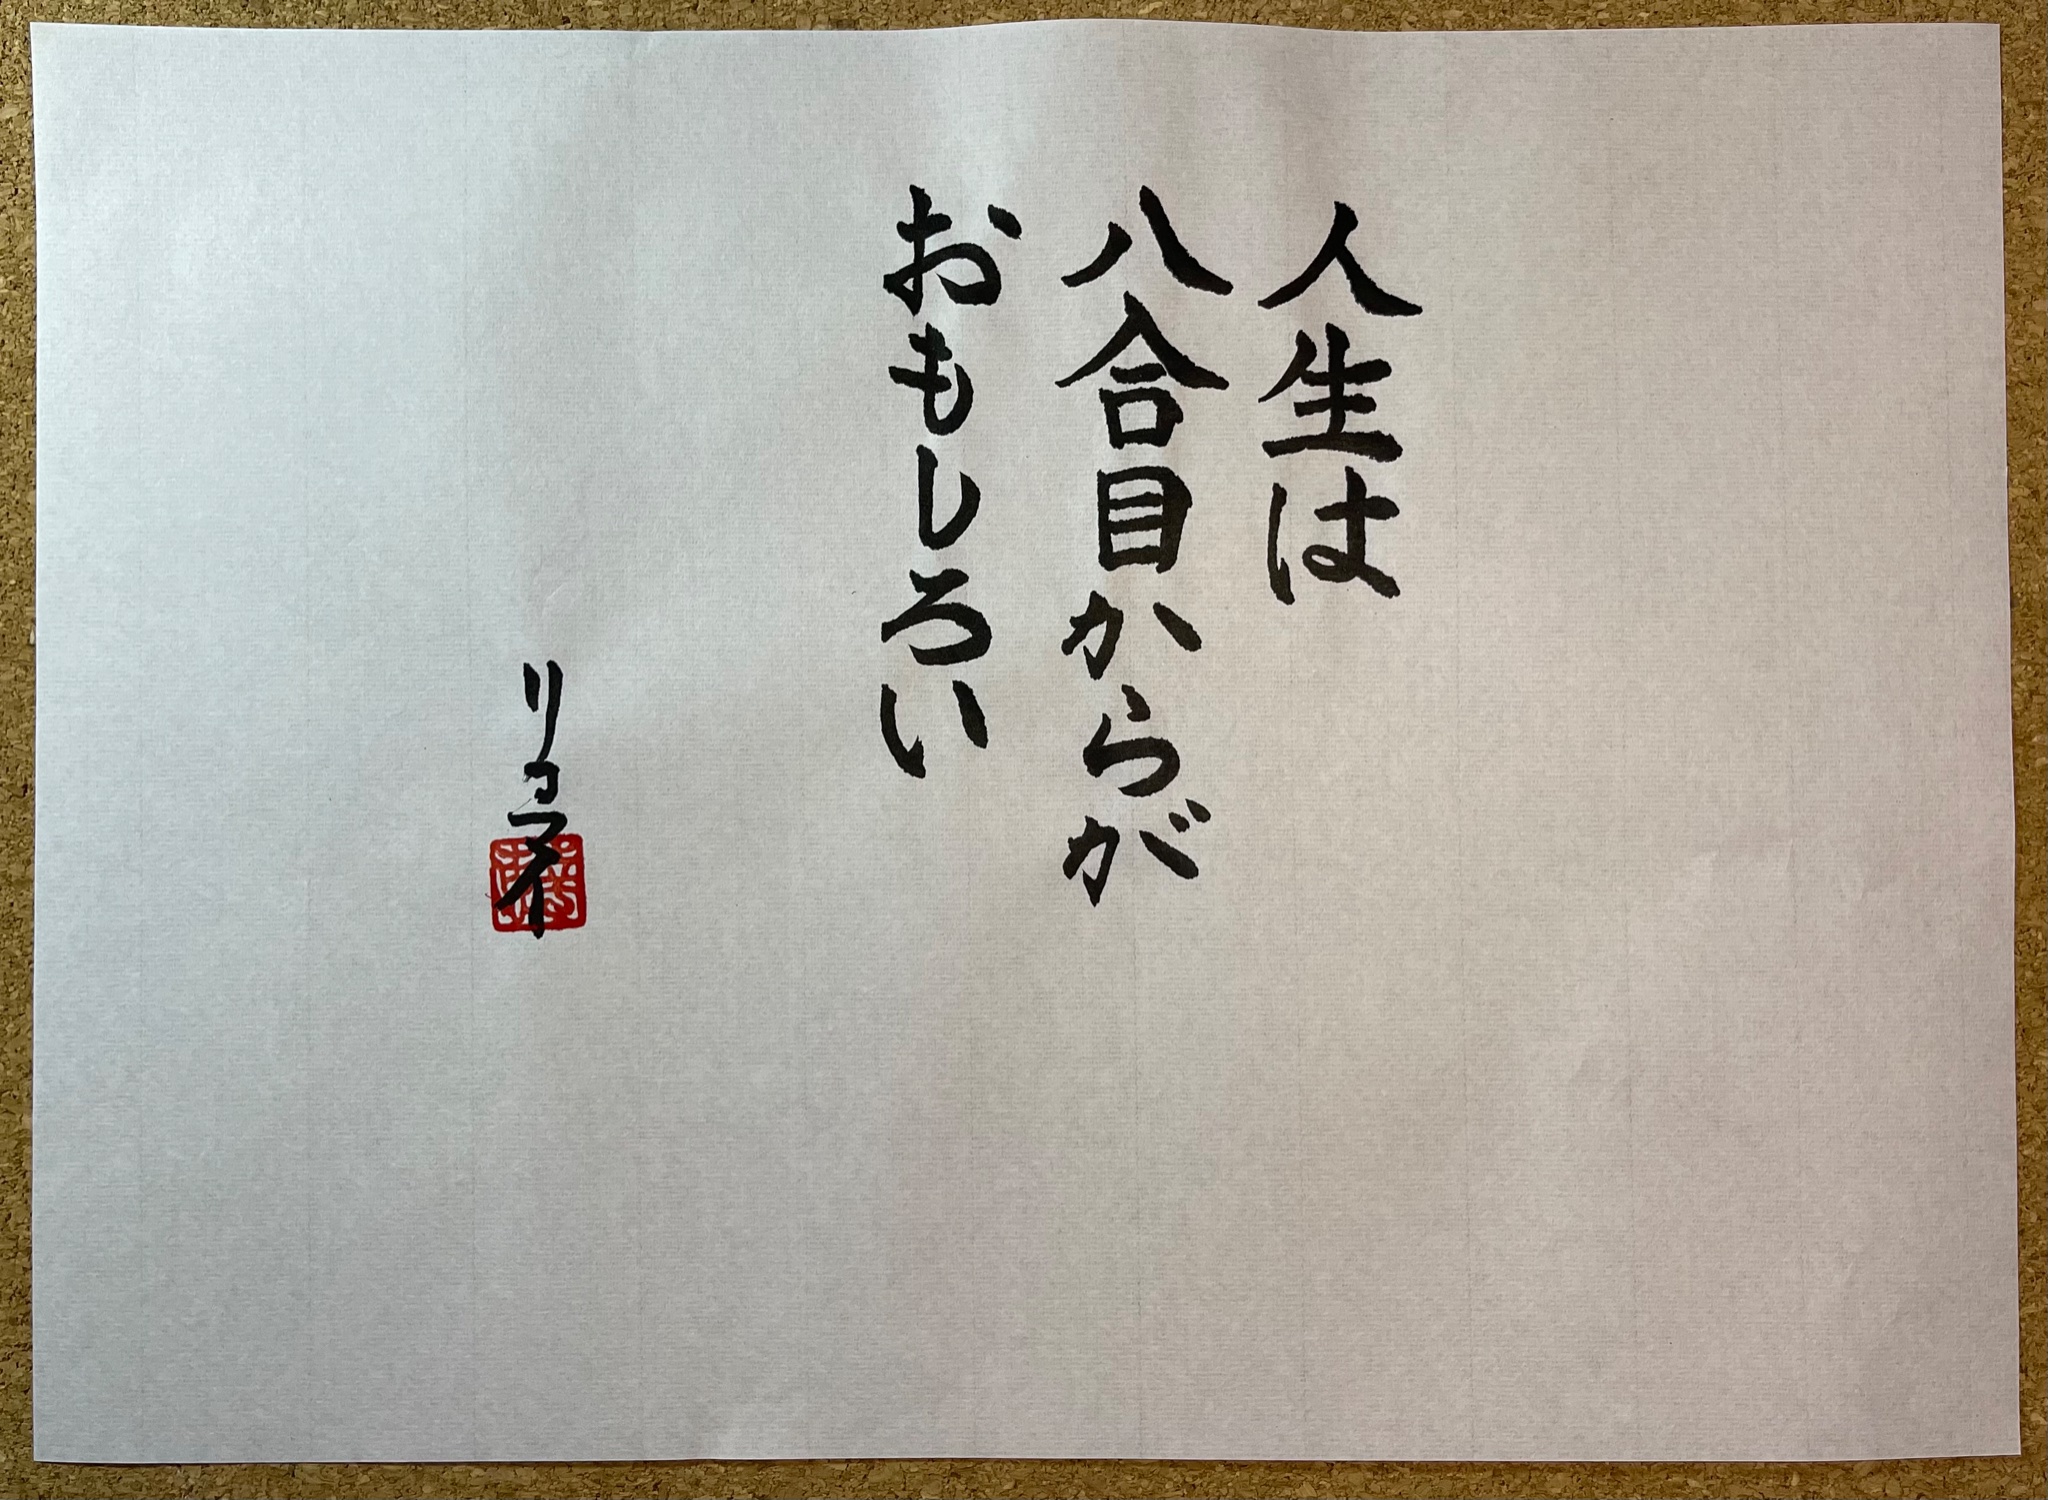 人生は
八合目からが
おもしろい
リョマイ